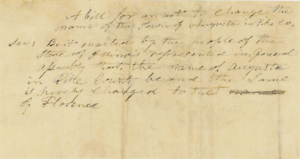 A bill for an act to change the
name of the Town of Augusta in Pike Co.
Sec 1 Be it enacted by the people of the
State of Illinois represented in general
assembly that the name of Augusta
in Pike County be and the same
is hereby changed to that name
of Florence